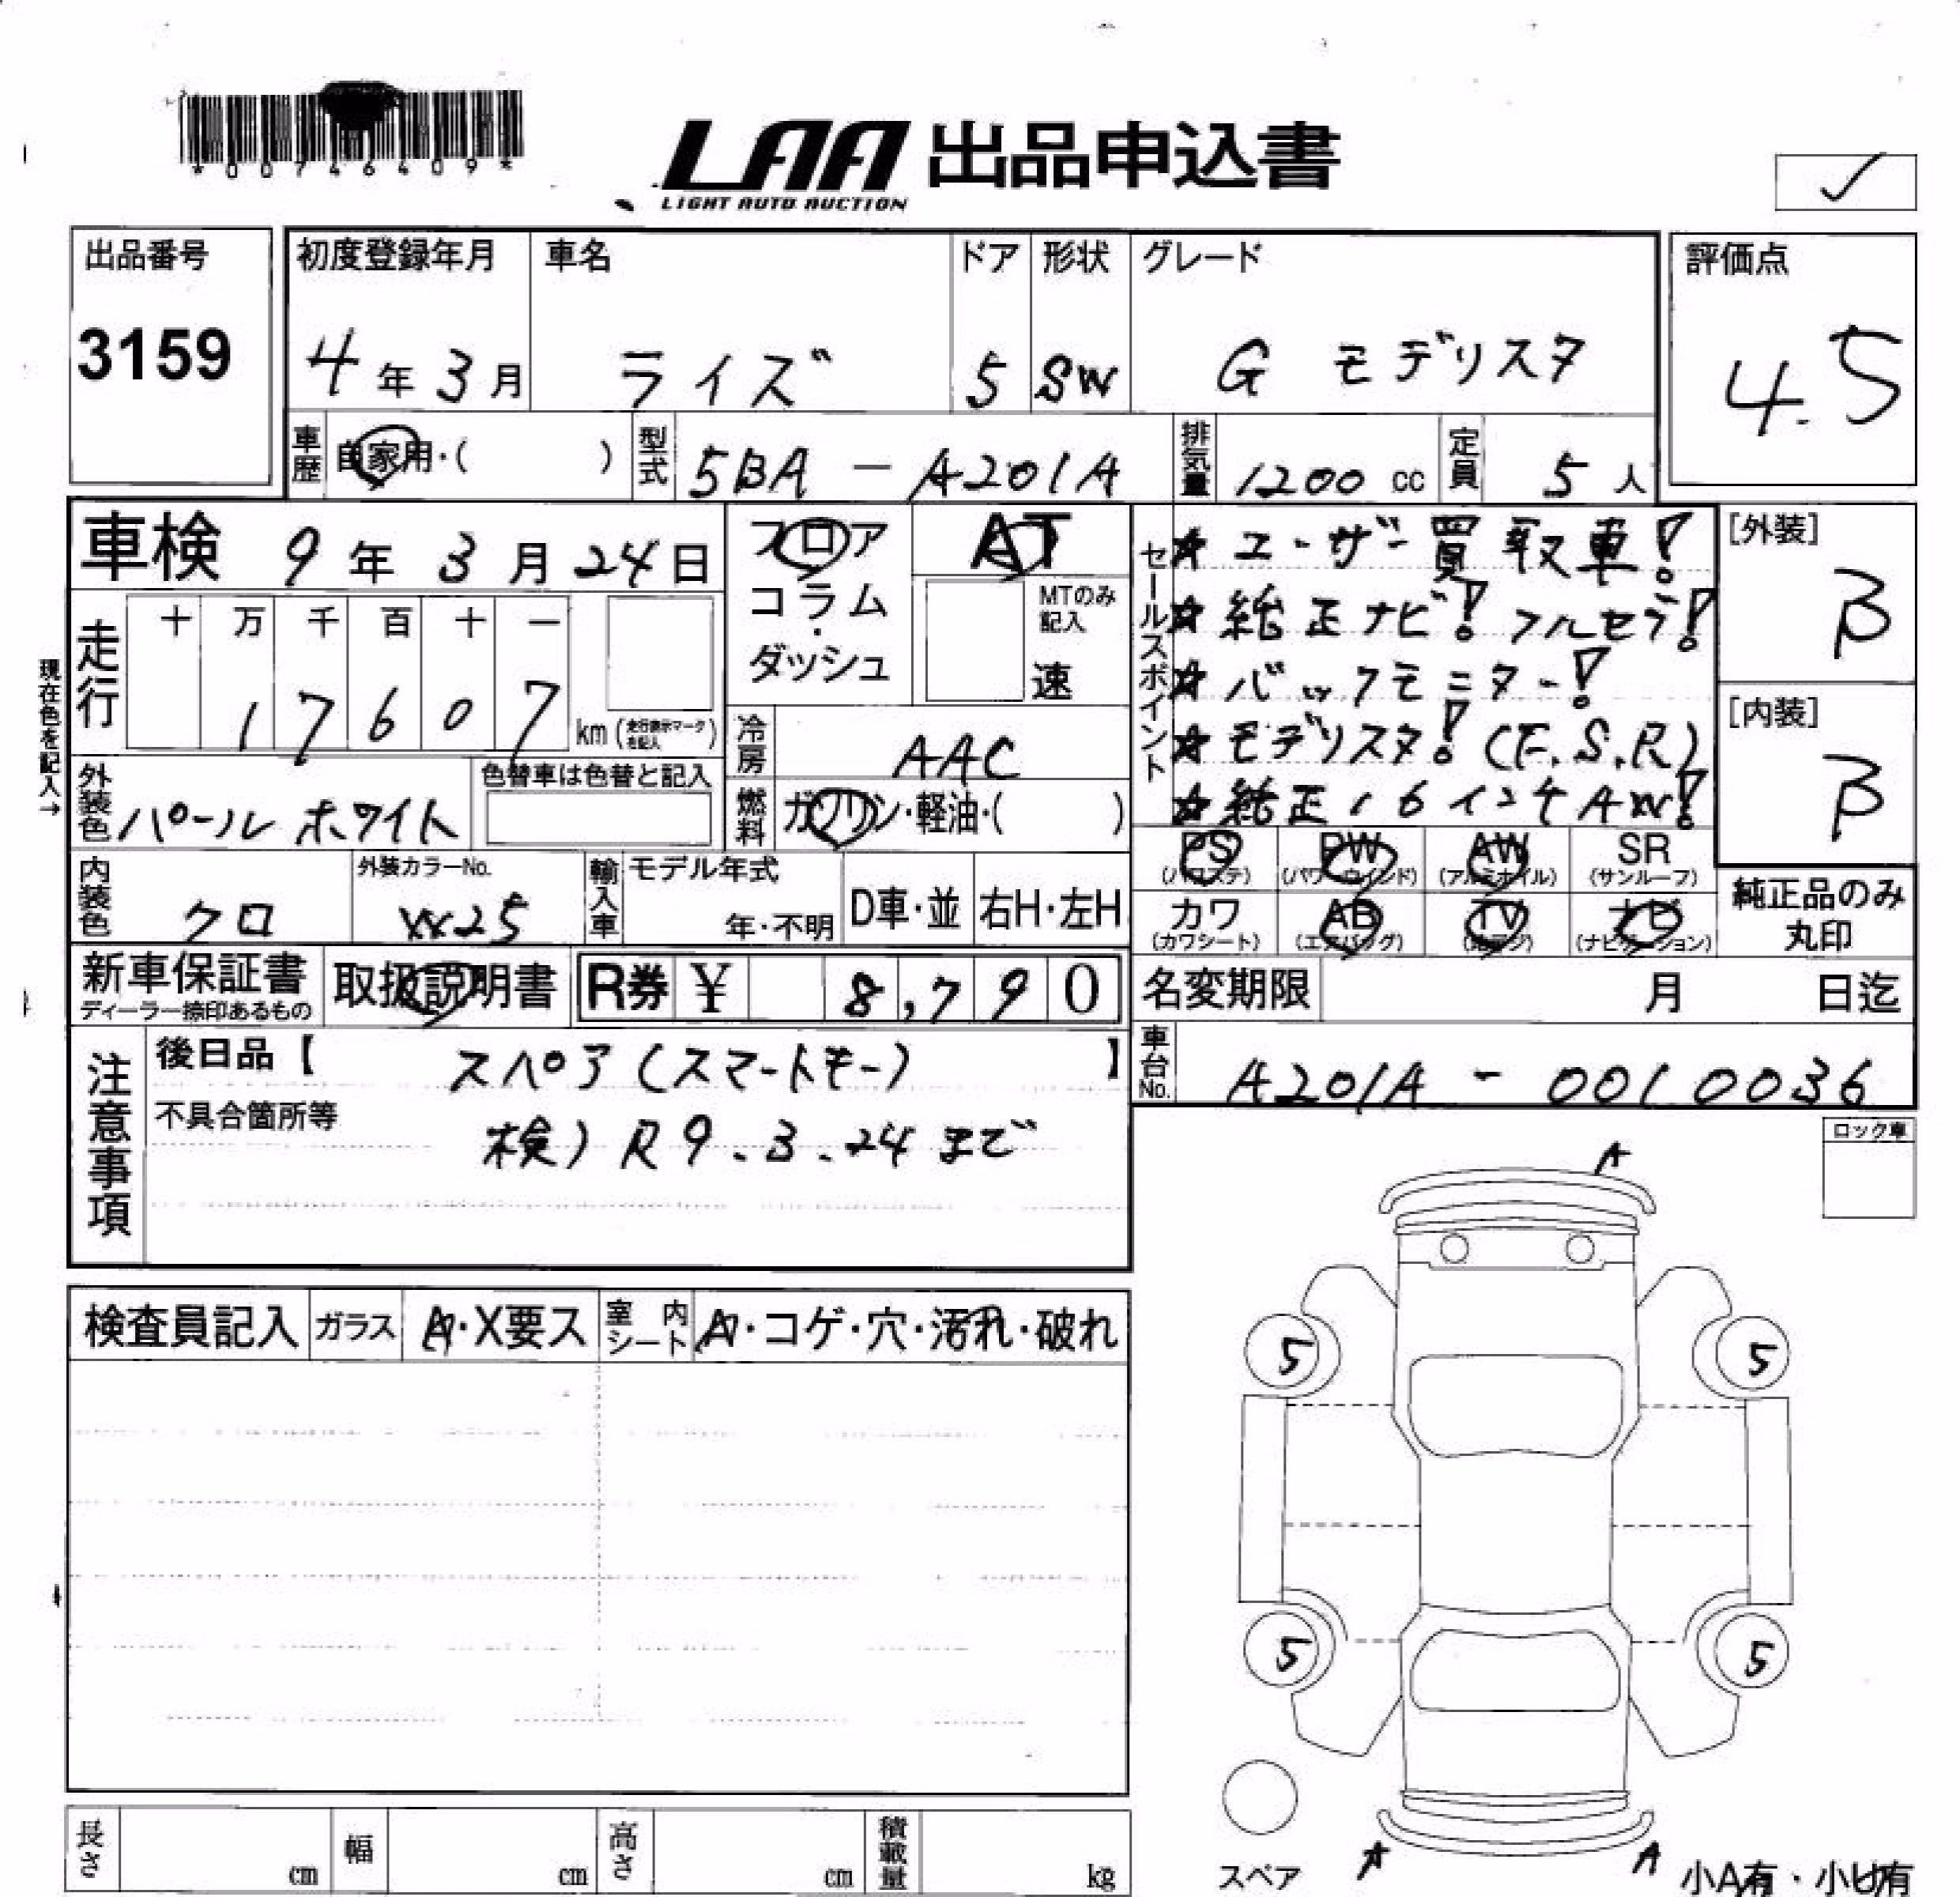 *00746409*
LAA 出品申込書
LIGHT AUTO AUCTION
出品番号
3159
初度登録年月
4年3月
車名
ライズ
ドア
5
形状
SW
グレード
G モデリスタ
評価点
4.5
車歴
自家用・( )
型式
5BA - A201A
排気量
1200 cc
定員
5人
車検 9年3月24日
フロア
コラム
・
ダッシュ
AT
MTのみ
記入
速
セールスポイント
★ユーザー買取車!
★純正ナビ!フルセグ!
★バックモニター!
★モデリスタ!(F.S.R)
★純正16インチAW!
[外装]
B
[内装]
B
現在色を記入→
走行
十 万 千 百 十 一
1 7 6 0 7
km (走行表示マークを記入)
冷房
AAC
外装色
パールホワイト
色替車は色替と記入
燃料
ガソリン・軽油・( )
PS
(パワステ)
PW
(パワーウインド)
AW
(アルミホイル)
SR
(サンルーフ)
内装色
クロ
外装カラーNo.
W25
輸入車
モデル年式
年・不明
D車・並
右H・左H
カワ
(カワシート)
AB
(エアバッグ)
TV
(地デジ)
ナビ
(ナビゲーション)
純正品のみ
丸印
新車保証書
ディーラー捺印あるもの
取扱説明書
R券 ¥ 8,790
名変期限 月 日迄
注意事項
後日品【 スペア(スマートキー) 】
不具合箇所等
検)R9.3.24まで
車台No.
A201A - 0010036
ロック車
A
検査員記入
ガラス
A・X要ス
室内シート
A・コゲ・穴・汚れ・破れ
5 5
5 5
長さ cm
幅 cm
高さ cm
積載量 kg
スペア
A A
小A有・小U有